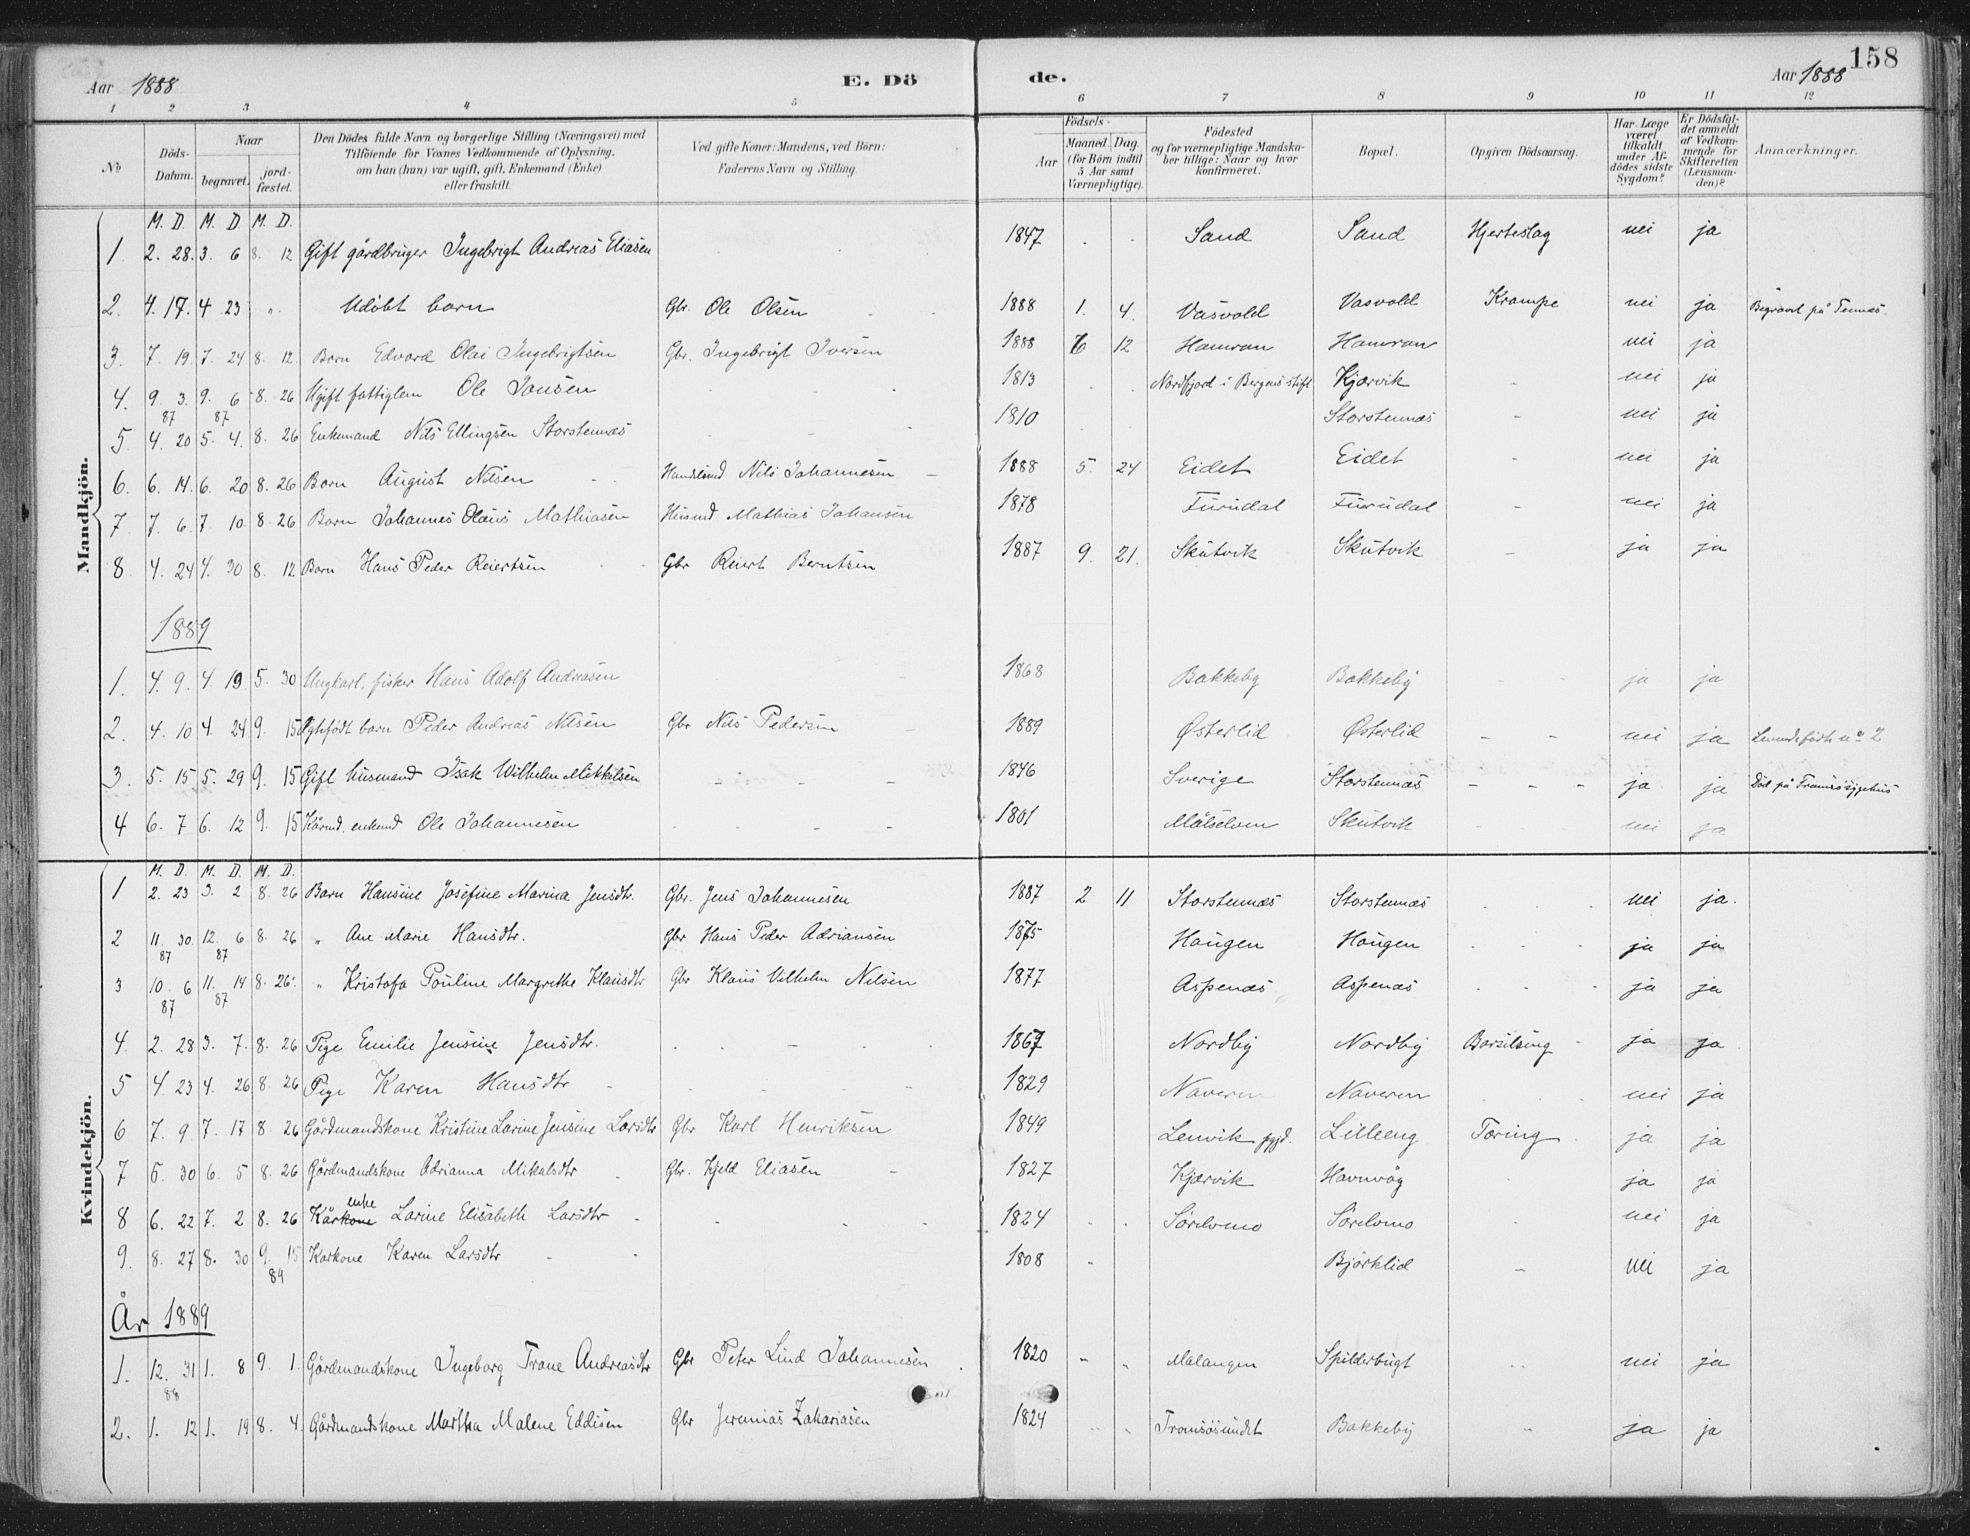 158
Aar 1888 E. Dö de. Aar 1888
1 2 3 4 5 6 7 8 9 10 11 12
No Döds-Datum. Naar begravet. jord-fæstet. Den Dödes fulde Navn og borgerlige Stilling (Næringsvei) med Tilföiende for Voxnes Vedkommende af Oplysning, om han (hun) var ugift, gift, Enkemand (Enke) eller fraskilt. Ved gifte Koner: Mandens, ved Börn: Faderens Navn og Stilling. Födsels- Aar Maaned. Dag. (for Börn indtil 5 Aar samt Værnepligtige). Födested og for værnepligtige Mandskaber tillige: Naar og hvor konfirmeret. Bopæl. Opgiven Dödsaarsag. Har Læge været tilkaldt under Afdödes sidste Sygdom? Er Dödsfaldet anmeldt af Vedkommende for Skifteretten (Lensmanden)? Anmærkninger.
Mandkjön.
M. D. M. D. M. D.
1. 2. 28. 3. 6 8. 12 Gift gårdbruger Ingebrigt Andreas Eliasen 1847 . . Sand Sand Hjerteslag nei ja
2. 4. 17. 4. 23 " Udöbt barn Gbr. Ole Olsen 1888 1. 4. Vasvold Vasvold Krampe nei ja Begravet på Tennes.
3. 7. 19. 7. 24 8. 12. Barn Edvard Olai Ingebrigtsen Gbr. Ingebrigt Iversen 1888 6 12 Hamran Hamran nei ja
4. 9. 3. 9. 6 8. 26 Ugift fattiglem Ole Jonsen 1813 . . Nordfjord i Bergens stift Kjærvik - nei ja
87 87
5 4. 20 5. 4. 8. 26 Enkemand Nils Ellingsen Storstennes 1810 Storstennæs - nei ja
6. 6. 14. 6. 20 8. 26 Barn August Nilsen Nils Johannesen 1888 5. 24 Eidet Eidet - nei ja
7 7. 6. 7. 10. 8. 26 Barn Johannes Olaus Mathiasen Husmd Mathias Johansen 1878 Furudal Furudal - nei ja
8. 4. 24 4. 30 8. 12 Barn Hans Peder Reiertsen Gbr Reiert Berntsen 1887 9. 21. Skutvik Skutvik - ja ja
1889
1. 4. 9. 4. 19 5. 30 Ungkarl, fisker Hans Adolf Andreasen 1868 Bakkeby Bakkeby - ja ja
2. 4. 10 4. 24 9. 15 Ægtefödt barn Peder Andreas Nilsen Gbr Nils Pedersen 1889 Østerlid Østerlid - - nei ja no 2
3. 5. 15 5. 29 9. 15 Gift husmand Isak Wilhelm Mikkelsen 1846 Sverige Storstennæs - - - ja ja Död på Tromsö sygehus
4 6. 7 6. 12 9. 15 Kårmd. enkemd Ole Johannesen 1801 Målselven Skutvik nei ja
Kvindekjön.
M. D. M. D. M. D.
1 2. 23 3. 2 8. 26 Barn Hansine Josefine Marina Jensdtr. Gbr. Jens Johannesen 1887 2 11 Storstennæs Storstennæs nei ja.
2 11. 30. 12. 6 8. 26 " Ane Marie Hansdtr. Gbr Hans Peder Adriansen 1875 Haugen Haugen ja ja
87 87
3 10. 6 11. 14 8. 26. " Kristofa Pouline Margrethe Klausdtr Gbr Klaus Vilhelm Nilsen 1877 Aspenæs Aspenæs ja ja
87 87
4. 2. 28 3. 7. 8. 26 Pige Emilie Jensine Jensdtr. 1867 Nordby Nordby Barsilseng ja ja
5 4. 23 4. 26 8. 26 Pige Karen Hansdtr 1829 Naveren Naveren nei ja
6 7. 9 7. 17 8. 26 Gårdmandskone Kristine Larine Jensine Larsdtr Gbr Karl Henriksen 1849 Lenvik pgjd. Lilleeng Tæring ja ja
7 5. 30 6. 5 8. 26 Gårdmandskone Adrianna Mikalsdtr Gbr. Kjeld Eliasen 1827 Kjærvik Havnvåg ja ja
enke
8 6. 22 7. 2 8. 26 Kårkone Larine Elisabeth Larsdtr 1824 Sørelvmo Sørelvmo nei ja
9. 8. 27 8. 30 9. 15 Karkone Karen Larsdtr 1808 Björklid - nei ja
89
År 1889
1. 12. 31 1. 8 9. 1. Gårdmandskone Ingeborg Trane Andreasdtr Gbr Peter Lind Johannesen 1820 " " Malangen Spilderbugt nei ja
88
2. 1. 12 1. 19 8. 4. Gårdmandskone Martha Malene Eddisen Gbr Jeremias Zakariasen 1824 Tromsösundet Bakkeby ja ja